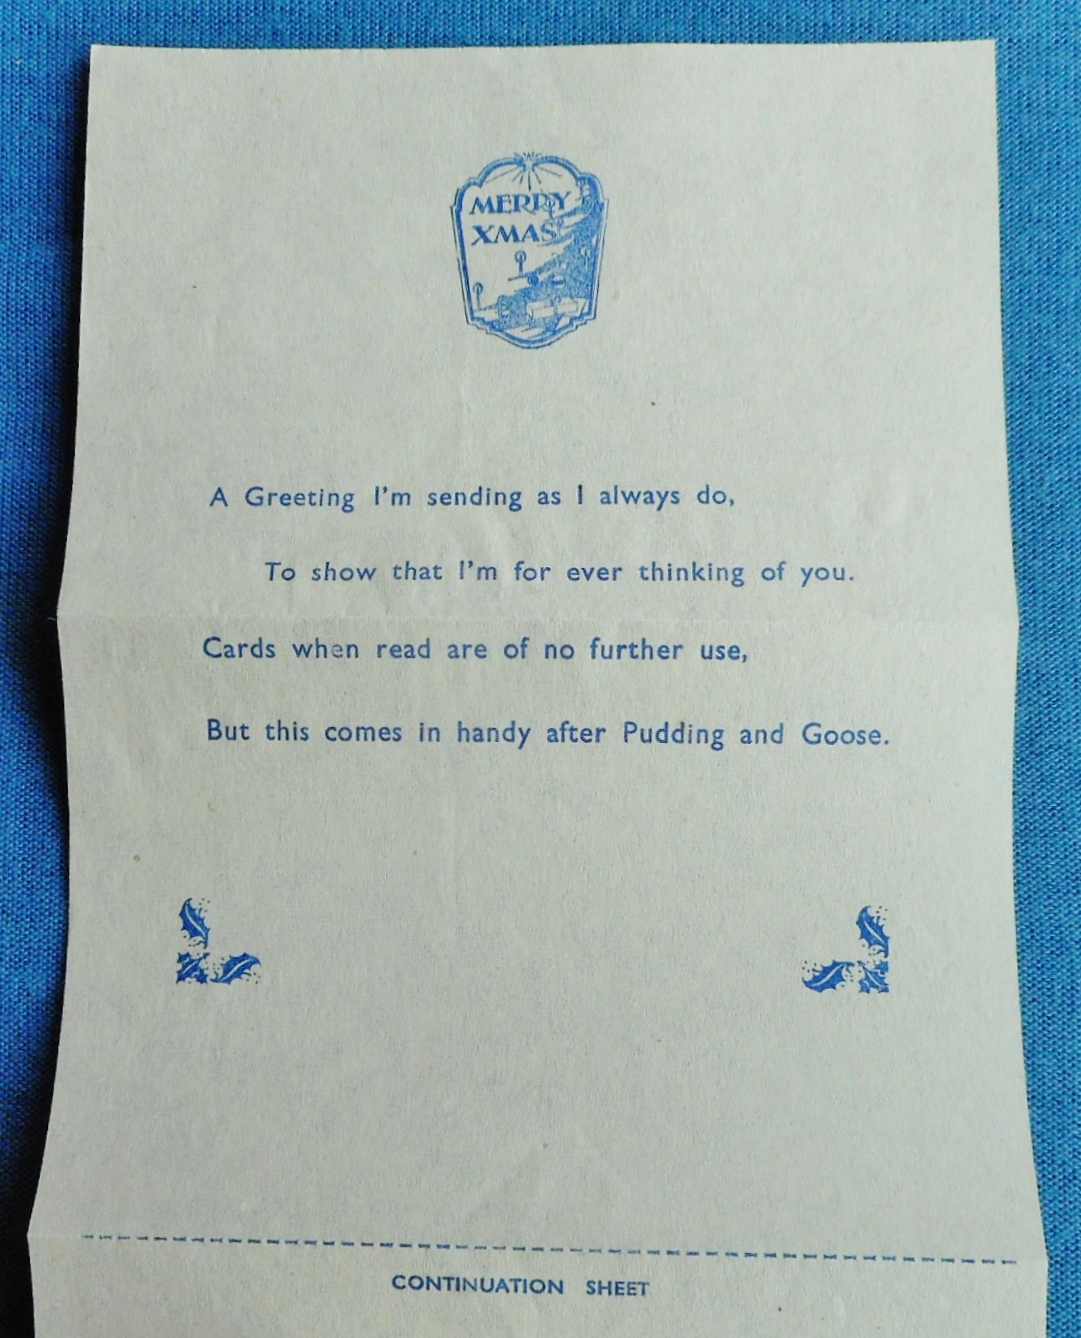 MERRY
XMAS
A Greeting I'm sending as I always do,
To show that I'm for ever thinking of you.
Cards when read are of no further use,
But this comes in handy after Pudding and Goose.
CONTINUATION SHEET